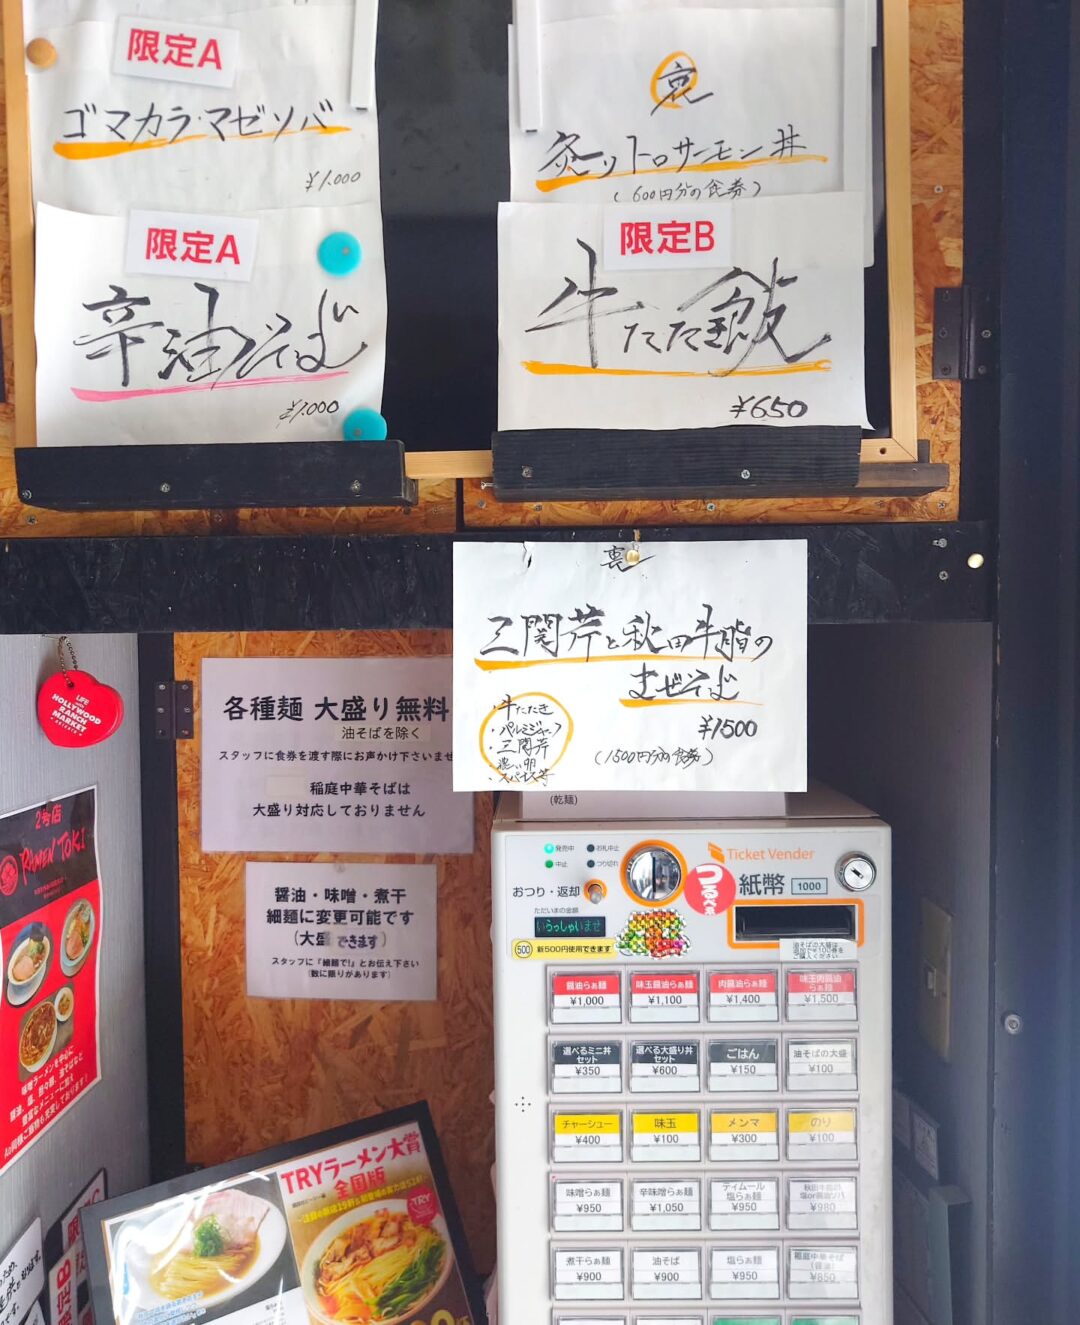 限定A
ゴマカラ・マゼソバ
¥1.000
限定A
辛油そば
¥1.000
裏
炙りトロサーモン丼
(600円分の食券)
限定B
牛たたき飯
¥650
裏
三関芹と秋田牛脂の
まぜそば
¥1500
(1500円分の食券)
・牛たたき
・パルミジャーノ
・三関芹
・濃い卵
・スパイス等
各種麺 大盛り無料
油そばを除く
スタッフに食券を渡す際にお声かけ下さいませ
稲庭中華そばは
大盛り対応しておりません
醤油・味噌・煮干
細麺に変更可能です
(大盛できます)
スタッフに「細麺で!」とお伝え下さい
(数に限りがあります)
LIFE
HOLLYWOOD
RANCH
MARKET
2号店
RAMEN TOKI
味噌ラーメンを中心に
醤油、塩、担々麺、油そばなど
豊富なメニューに加え
TRYラーメン大賞
全国版
TRY
(乾麺)
発売中
お札中止
中止
つり切れ
おつり・返却
ただいまの金額
いらっしゃいませ
500
新500円使用できます
Ticket Vender
つるべ系
紙幣
1000
油そばの大盛は
追加で¥100券を
ご購入ください
醤油らぁ麺
¥1,000
味玉醤油らぁ麺
¥1,100
肉醤油らぁ麺
¥1,400
味玉肉醤油
らぁ麺
¥1,500
選べるミニ丼
セット
¥350
選べる大盛り丼
セット
¥600
ごはん
¥150
油そばの大盛
¥100
チャーシュー
¥400
味玉
¥100
メンマ
¥300
のり
¥100
味噌らぁ麺
¥950
辛味噌らぁ麺
¥1,050
ティムール
塩らぁ麺
¥950
秋田牛節の
塩or醤油ソバ
¥980
煮干らぁ麺
¥900
油そば
¥900
塩らぁ麺
¥950
稲庭中華そば
(醤油)
¥850